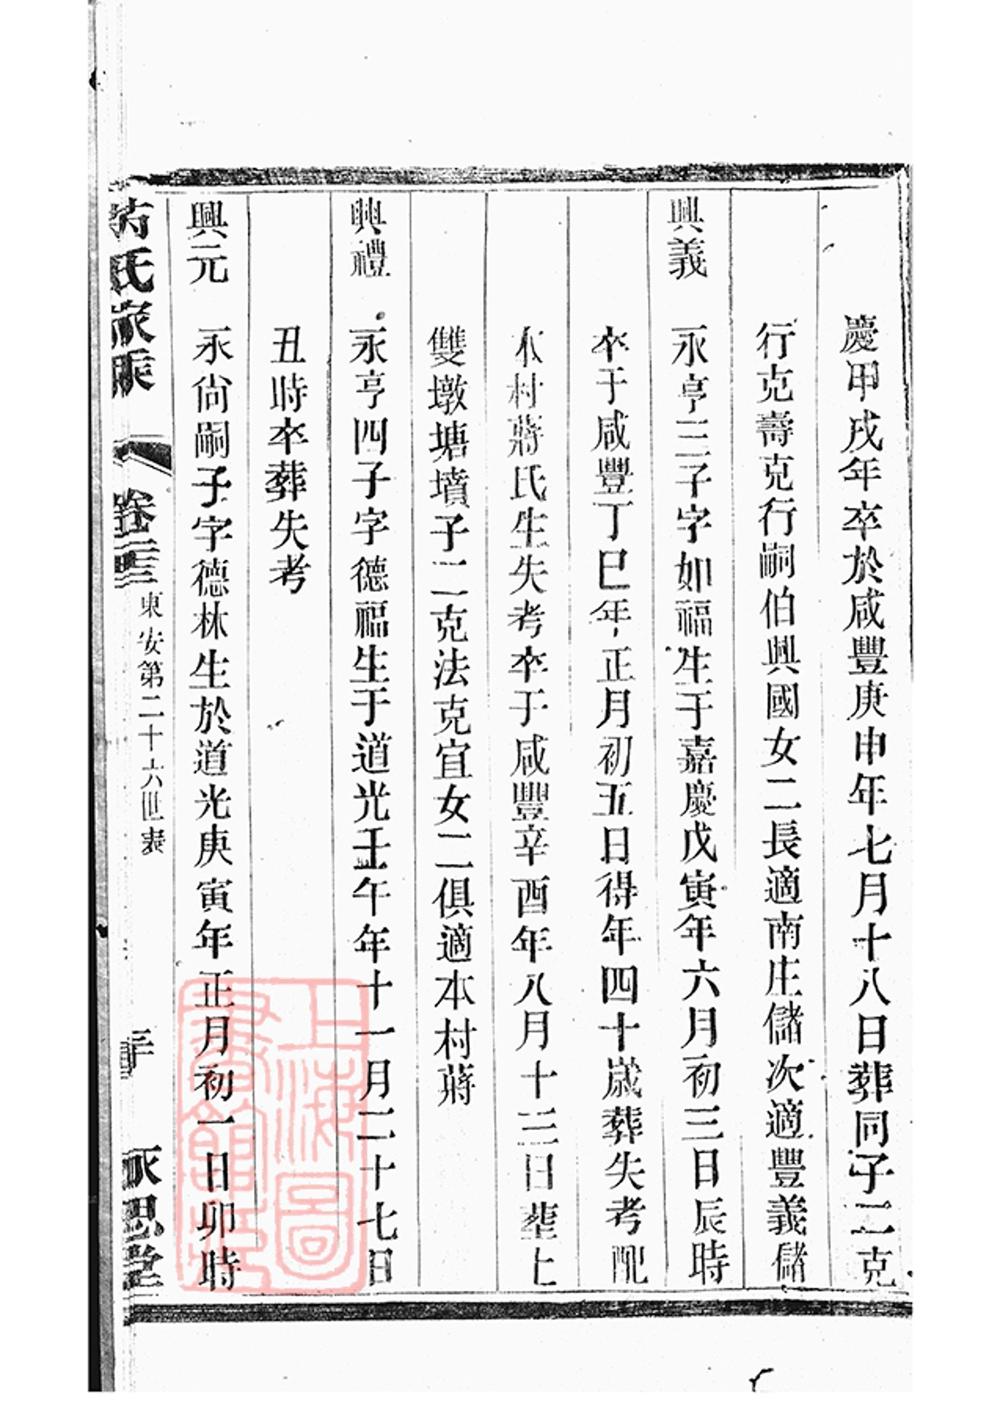 慶甲戌年卒於咸豐庚申年七月十八日葬同子二克
行克壽克行嗣伯興國女二長適南庄儲次適豐義儲
興義 永亨三子字如福生于嘉慶戊寅年六月初三日辰時
卒于咸豐丁巳年正月初五日得年四十歲葬失考配
本村蔣氏生失考卒于咸豐辛酉年八月十三日葬上
雙墩塘墳子二克法克宜女二俱適本村蔣
興禮 永亨四子字德福生于道光壬午年十一月二十七日
丑時卒葬失考
興元 永尙嗣子字德林生於道光庚寅年正月初一日卯時
氏家乘 卷三 東安第二十六世表 永思堂
上海圖書館藏